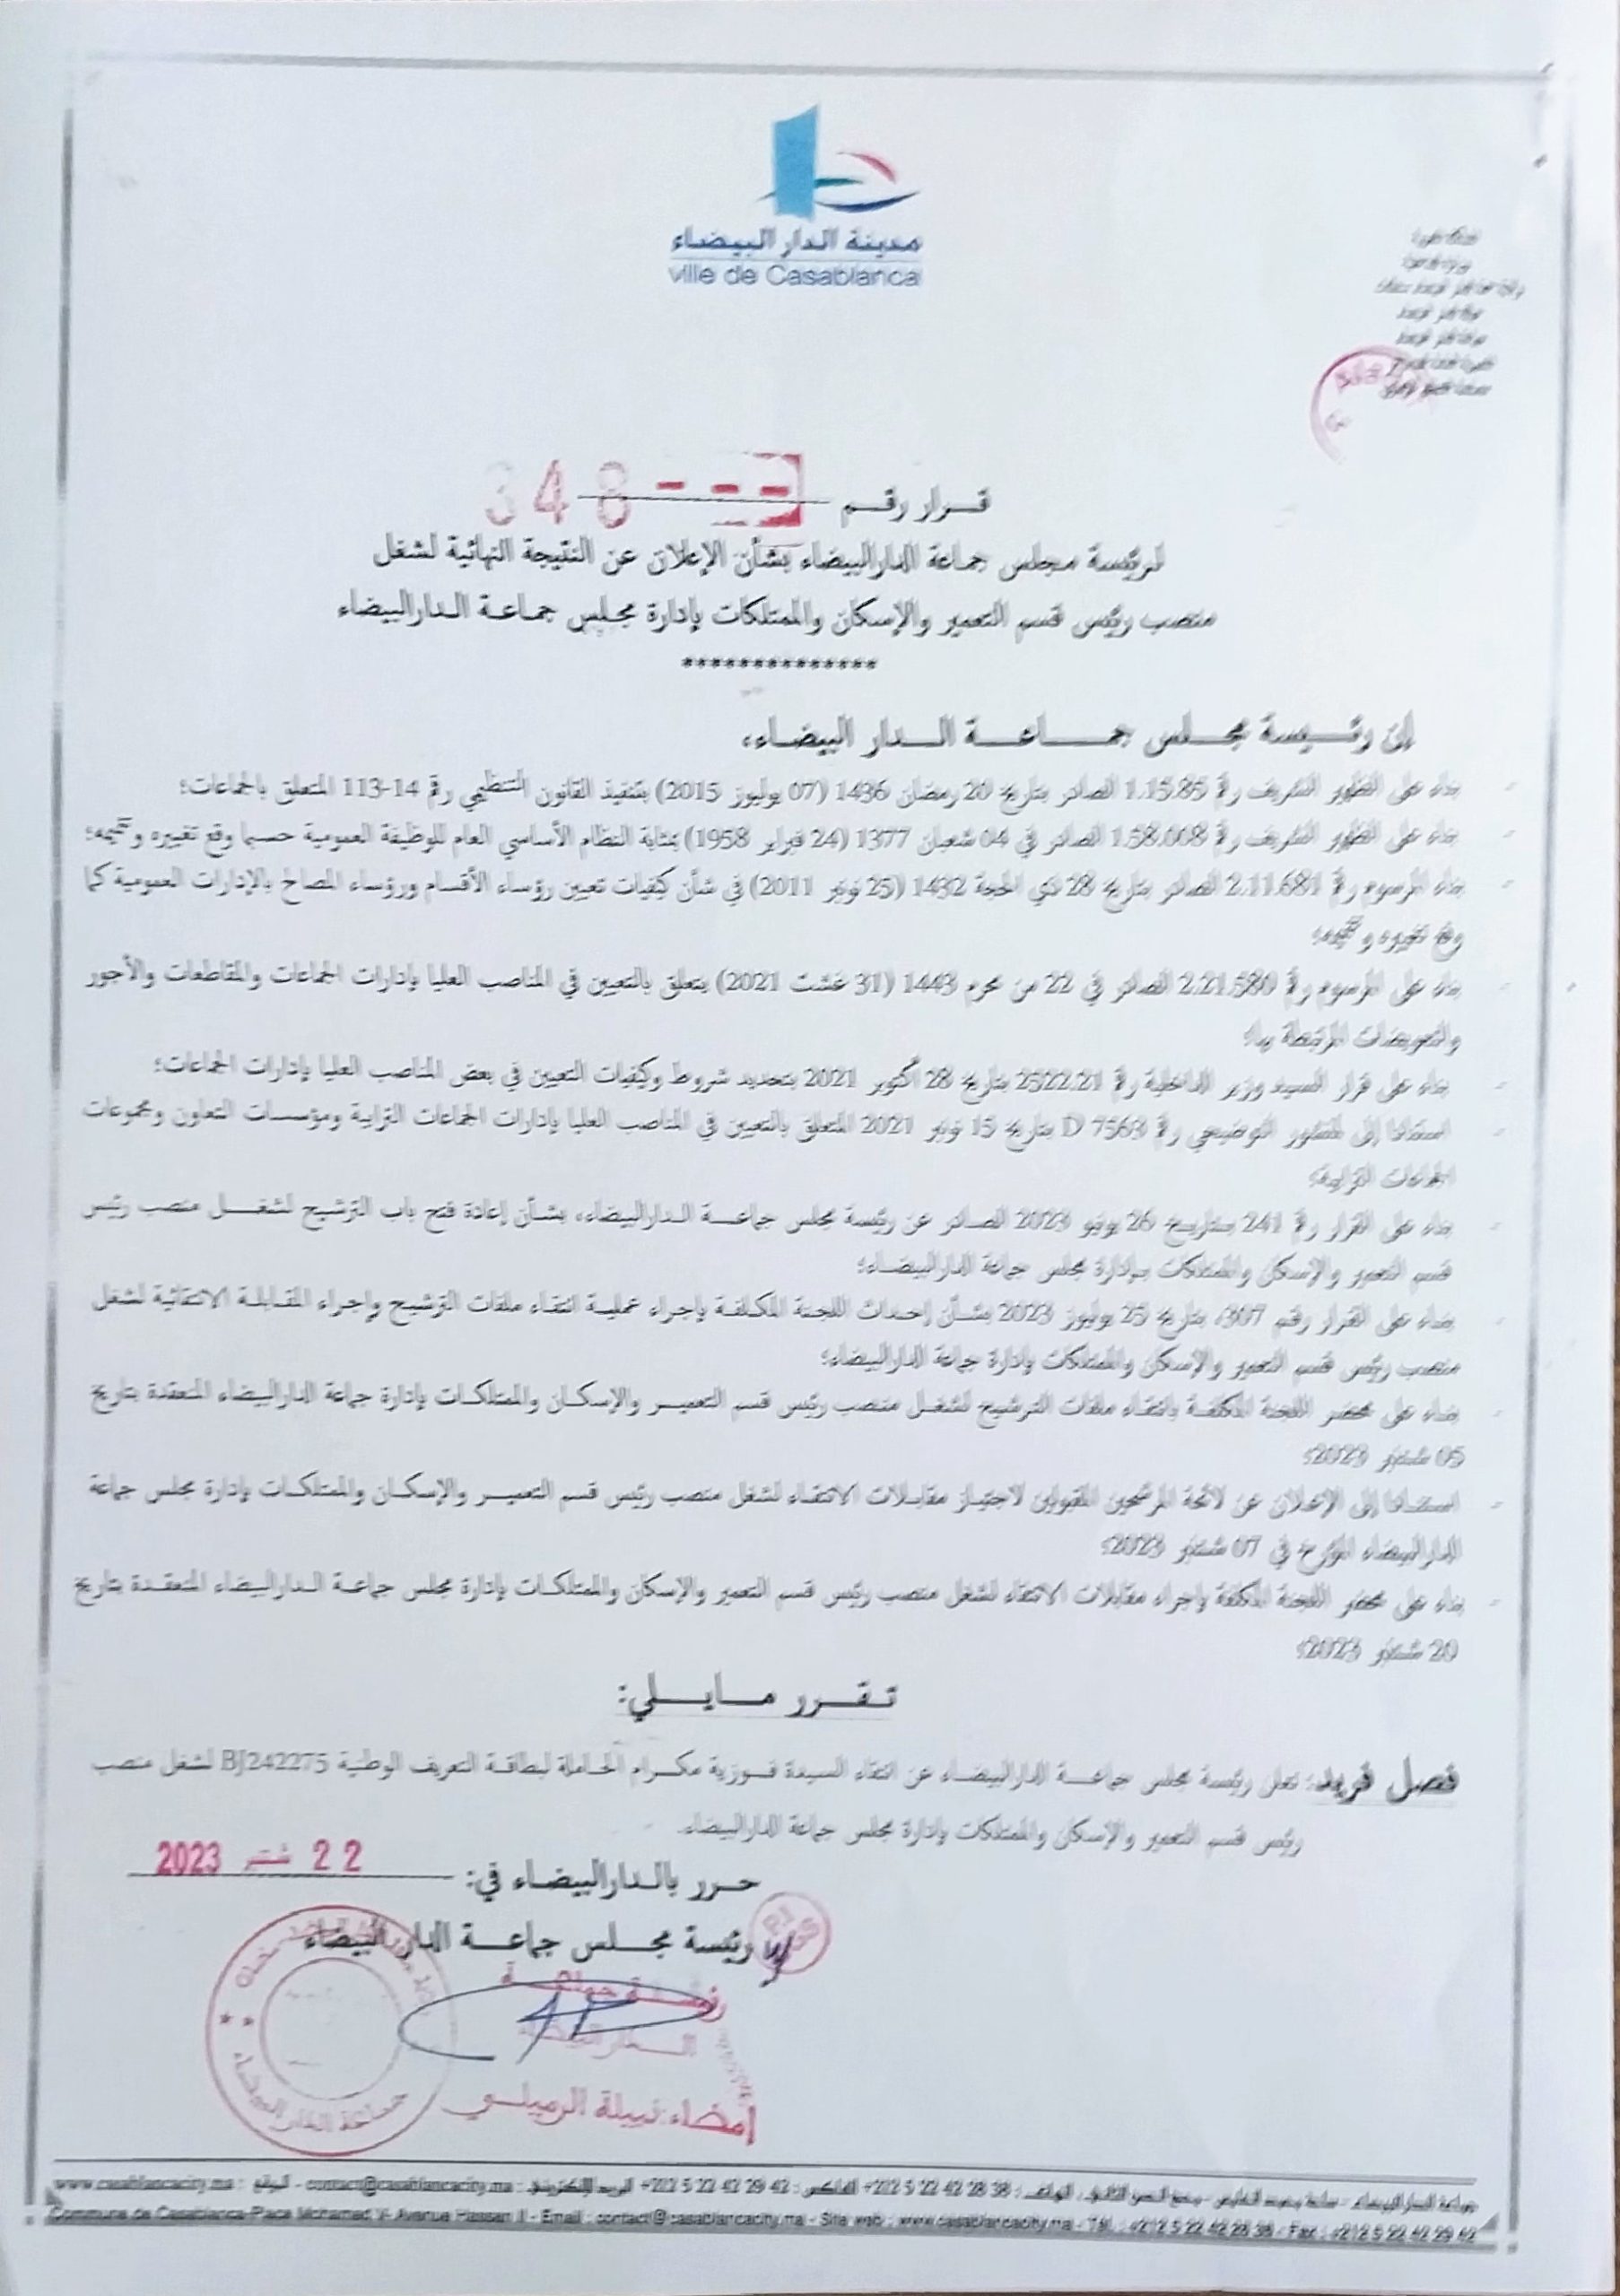 مدينة الدار البيضاء
ville de Casablanca
قـــرار رقـــم 348
لرئيسة مجلس جماعة الدارالبيضاء بشأن الإعلان عن النتيجة النهائية لشغل
منصب رئيس قسم التعمير والإسكان والممتلكات بإدارة مجلس جماعة الدارالبيضاء
**************
إن رئيسة مجلس جماعة الدار البيضاء،
- بناء على الظهير الشريف رقم 1.15.85 الصادر بتاريخ 20 رمضان 1436 (07 يوليوز 2015) بتنفيذ القانون التنظيمي رقم 14-113 المتعلق بالجماعات؛
- بناء على الظهير الشريف رقم 1.58.008 الصادر في 04 شعبان 1377 (24 فبراير 1958) بمثابة النظام الأساسي العام للوظيفة العمومية حسبما وقع تغييره وتتميمه؛
- بناء المرسوم رقم 2.11.681 الصادر بتاريخ 28 ذي الحجة 1432 (25 نونبر 2011) في شأن كيفيات تعيين رؤساء الأقسام ورؤساء المصالح بالإدارات العمومية كما
وقع تغييره وتتميمه؛
- بناء على المرسوم رقم 2.21.580 الصادر في 22 من محرم 1443 (31 غشت 2021) يتعلق بالتعيين في المناصب العليا بإدارات الجماعات والمقاطعات والأجور
والتعويضات المرتبطة بها؛
- بناء على قرار السيد وزير الداخلية رقم 2522.21 بتاريخ 28 أكتوبر 2021 بتحديد شروط وكيفيات التعيين في بعض المناصب العليا بإدارات الجماعات؛
- استنادا إلى المنشور التوضيحي رقم D 7563 بتاريخ 15 نونبر 2021 المتعلق بالتعيين في المناصب العليا بإدارات الجماعات الترابية ومؤسسات التعاون ومجموعات
الجماعات الترابية؛
- بناء على القرار رقم 241 بتاريخ 26 يونيو 2023 الصادر عن رئيسة مجلس جماعة الدارالبيضاء، بشأن إعادة فتح باب الترشيح لشغل منصب رئيس
قسم التعمير والإسكان والممتلكات بإدارة مجلس جماعة الدارالبيضاء؛
- بناء على القرار رقم 307، بتاريخ 25 يوليوز 2023 بشأن إحداث اللجنة المكلفة بإجراء عملية انتقاء ملفات الترشيح وإجراء المقابلة الانتقائية لشغل
منصب رئيس قسم التعمير والإسكان والممتلكات بإدارة جماعة الدارالبيضاء؛
- بناء على محضر اللجنة المكلفة بانتقاء ملفات الترشيح لشغل منصب رئيس قسم التعمير والإسكان والممتلكات بإدارة جماعة الدارالبيضاء المنعقدة بتاريخ
05 شتنبر 2023؛
- استنادا إلى الإعلان عن لائحة المرشحين المقبولين لاجتياز مقابلات الانتقاء لشغل منصب رئيس قسم التعمير والإسكان والممتلكات بإدارة مجلس جماعة
الدارالبيضاء المؤرخ في 07 شتنبر 2023؛
- بناء على محضر اللجنة المكلفة بإجراء مقابلات الانتقاء لشغل منصب رئيس قسم التعمير والإسكان والممتلكات بإدارة مجلس جماعة الدارالبيضاء المنعقدة بتاريخ
20 شتنبر 2023؛
تقرر مايلي:
فصل فريد: تعلن رئيسة مجلس جماعة الدارالبيضاء عن انتقاء السيدة فوزية مكرام الحاملة لبطاقة التعريف الوطنية BJ242275 لشغل منصب
رئيس قسم التعمير والإسكان والممتلكات بإدارة مجلس جماعة الدارالبيضاء.
حرر بالدارالبيضاء في: 22 شتنبر 2023
رئيسة مجلس جماعة الدار البيضاء
رئيسة جماعة
الدار البيضاء
إمضاء: نبيلة الرميلي
جماعة الدار البيضاء
جماعة الدارالبيضاء - ساحة محمد الخامس - شارع الحسن الثاني - الهاتف : 38 28 42 22 5 212+ الفاكس : 42 29 42 22 5 212+ البريد الإلكتروني : contact@casablancacity.ma - الموقع : www.casablancacity.ma
Commune de Casablanca-Place Mohamed V- Avenue Hassan II - Email : contact@casablancacity.ma - Site web : www.casablancacity.ma - Tél. : +212 5 22 42 28 38 - Fax : +212 5 22 42 29 42